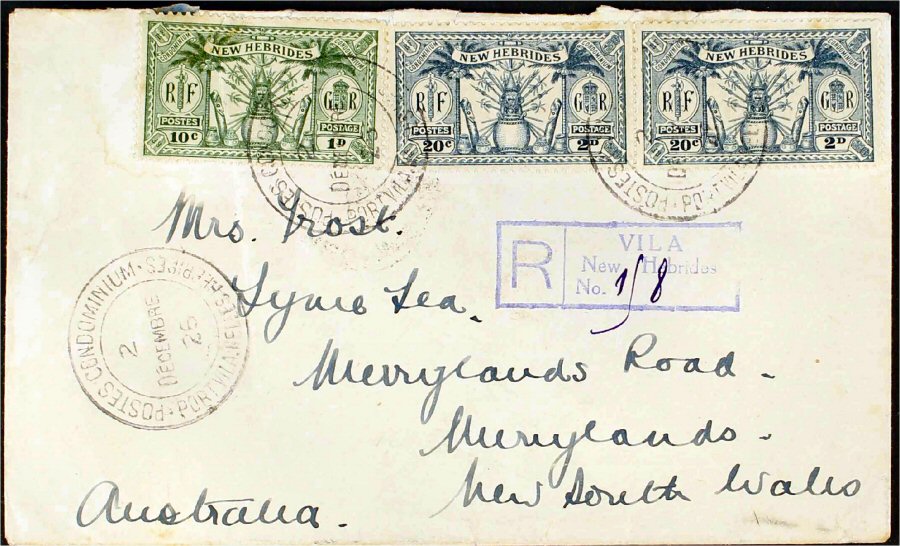 NEW HEBRIDES
RF GR
POSTES POSTAGE
10c 1D
NEW HEBRIDES
RF GR
POSTES POSTAGE
20c 2D
NEW HEBRIDES
RF GR
POSTES POSTAGE
20c 2D
Mrs. Frost.
R
VILA
New Hebrides
No. 1/8
Lyme Lea.
POSTES CONDOMINIUM · PORT VILA
2
DECEMBRE
25
Merrylands Road.
Merrylands.
New South Wales
Australia.